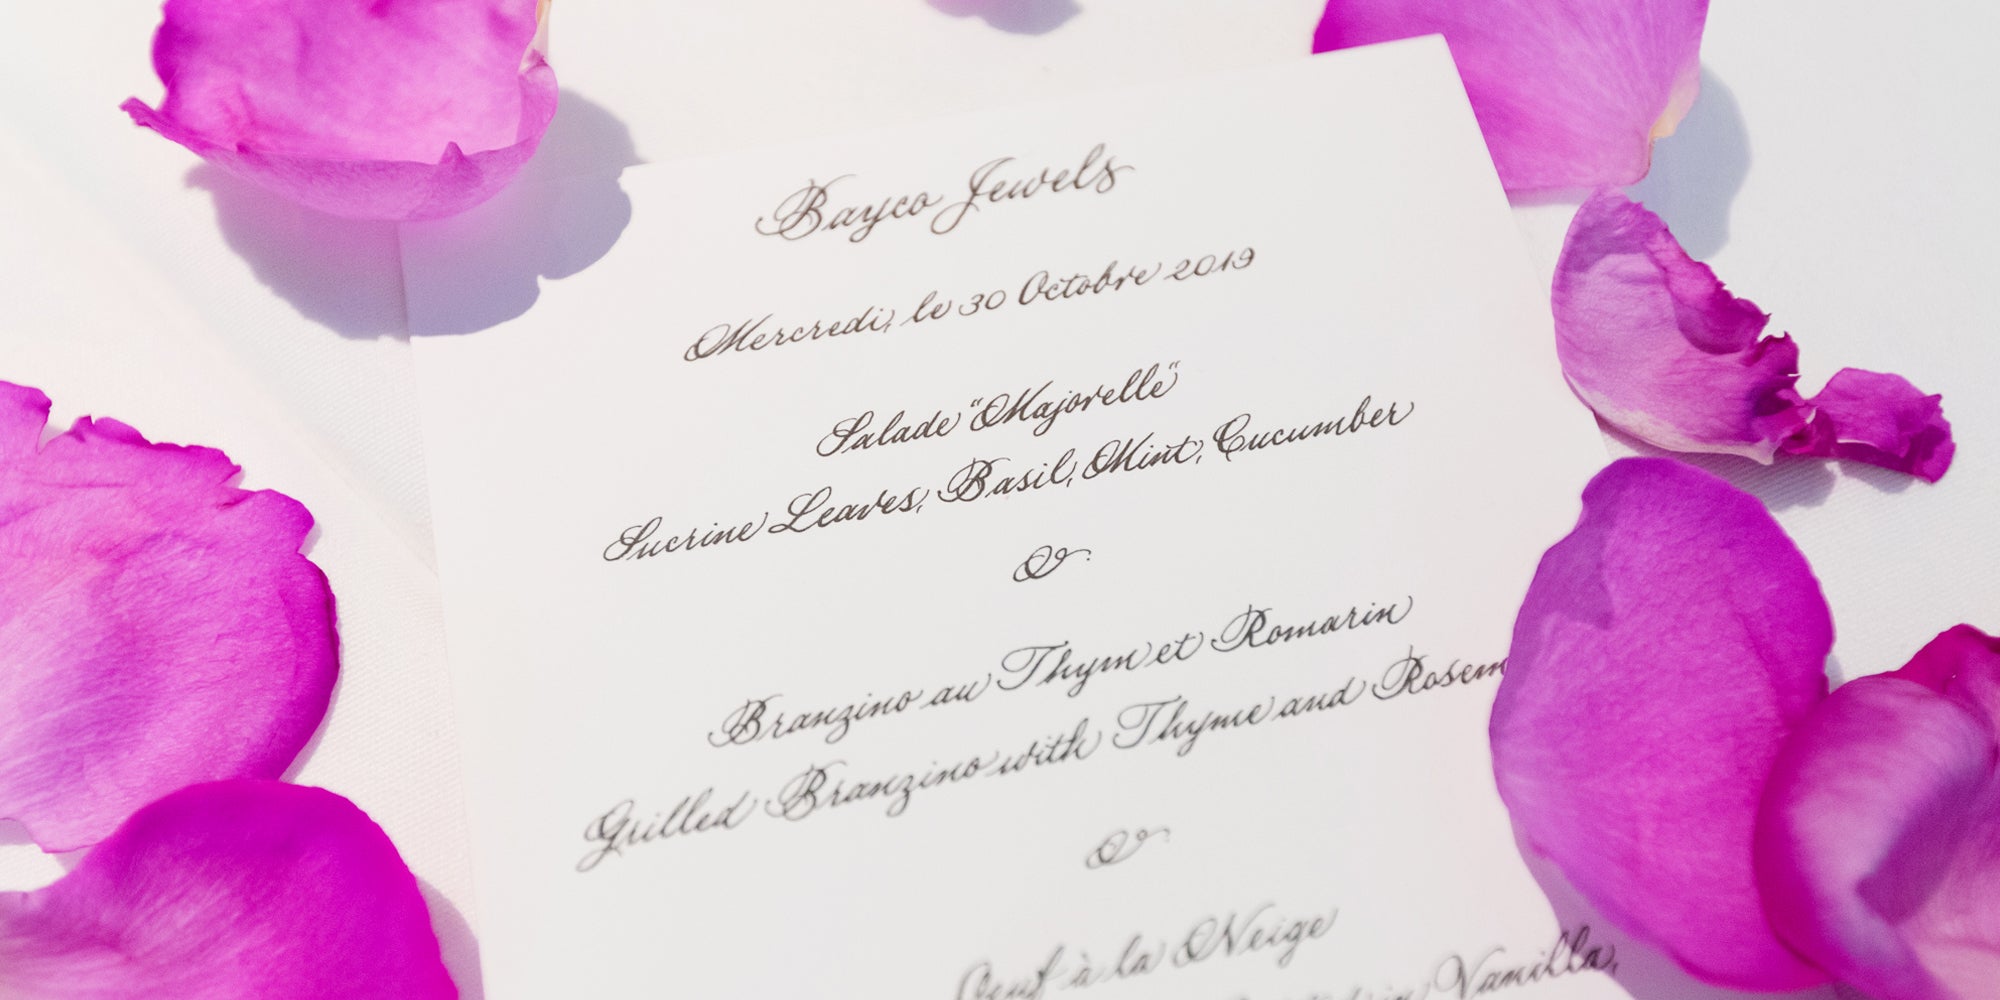 Bayco Jewels
Mercredi, le 30 Octobre 2019
Salade "Majorelle"
Sucrine Leaves, Basil, Mint, Cucumber
&
Branzino au Thym et Romarin
Grilled Branzino with Thyme and Rosem
&
Oeuf à la Neige
in Vanilla,